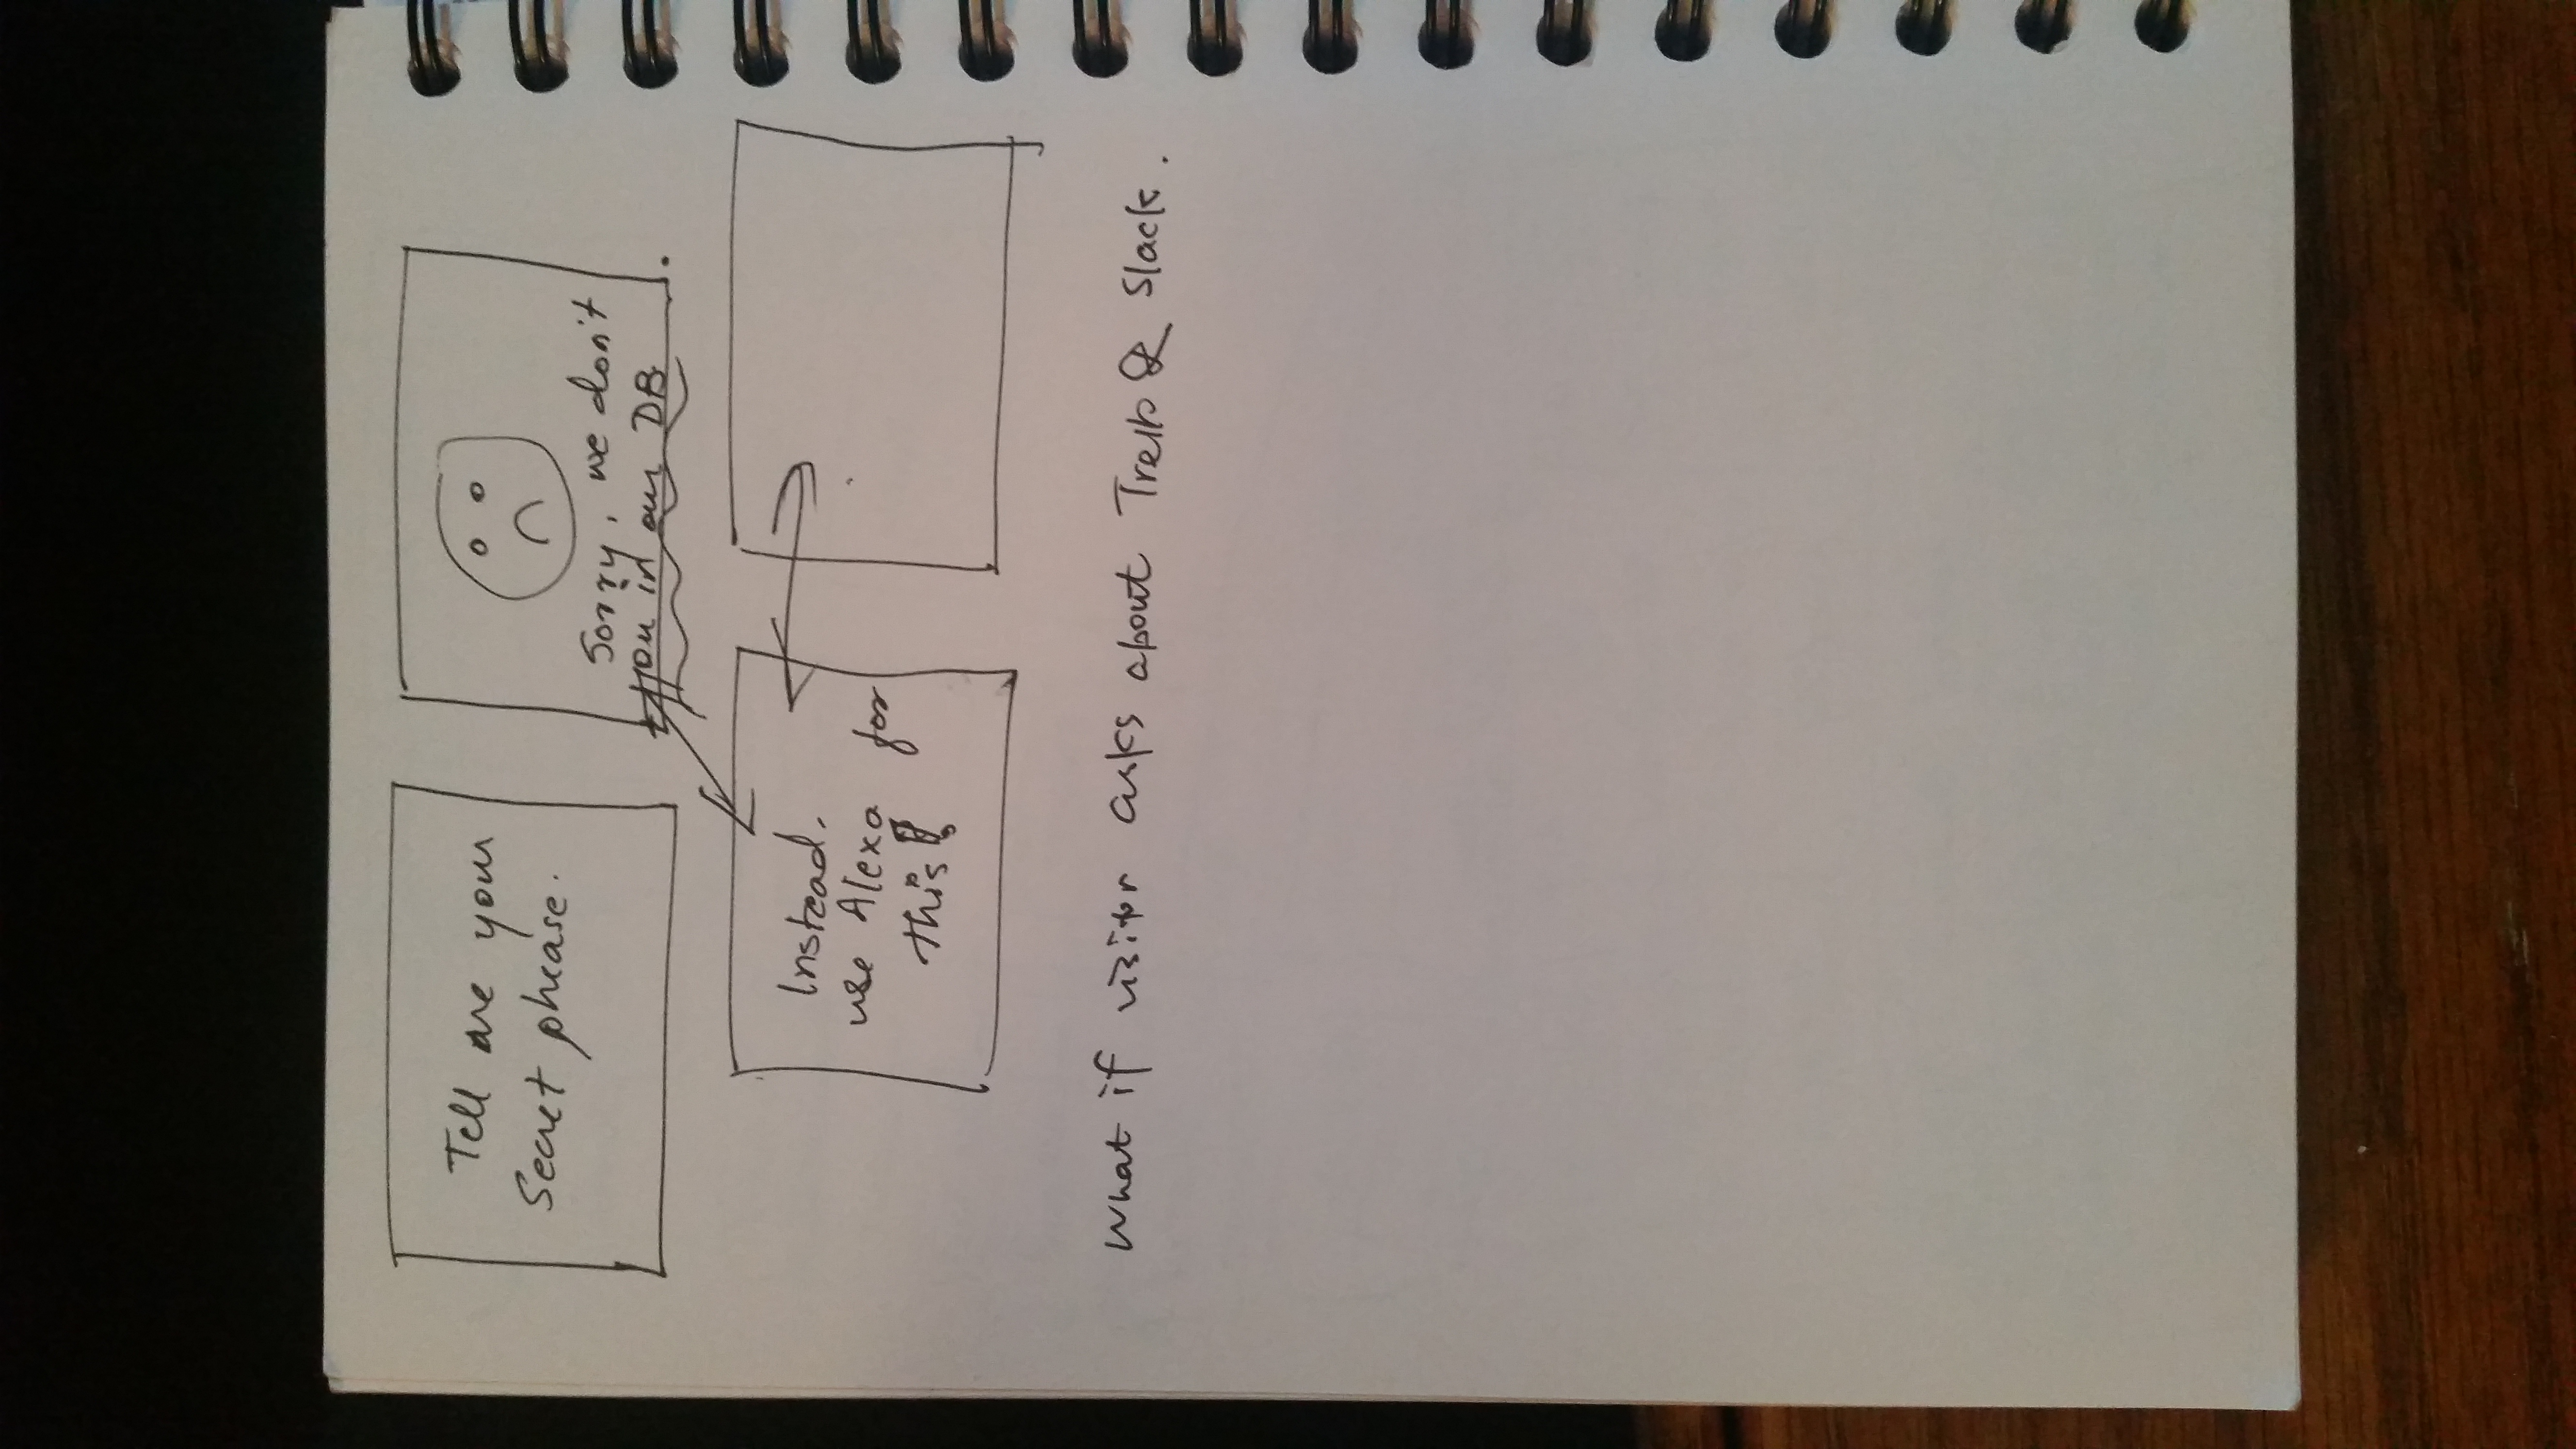 Tell me your
Secret phrase.
Sorry, we don't
you in our DB
Instead,
use Alexa for
this!
What if visitor asks about Trello & Slack.